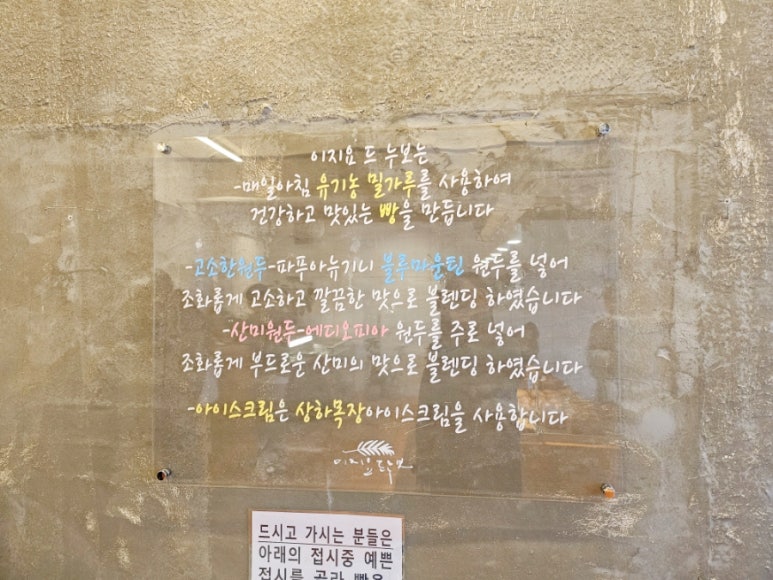 이지요 드 누보는
-매일아침 유기농 밀가루를 사용하여
건강하고 맛있는 빵을 만듭니다
-고소한원두-파푸아뉴기니 블루마운틴 원두를 넣어
조화롭게 고소하고 깔끔한 맛으로 블렌딩 하였습니다
-산미원두-에디오피아 원두를 주로 넣어
조화롭게 부드로운 산미의 맛으로 블렌딩 하였습니다
-아이스크림은 상하목장아이스크림을 사용합니다
이지요드누보
드시고 가시는 분들은
아래의 접시중 예쁜
접시를 골라 빵을